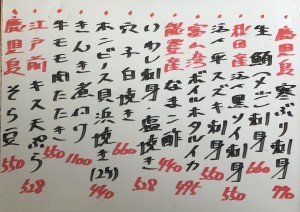 鹿児島 寒ぶり刺身 770
生鮪(メジ)刺身 660
秋田産 活〆黒ソイ刺身 550
活〆平スズキ刺身 550
富山湾 ボイルホタルイカ 495
能登産 なまこ酢 440
いわし刺身 塩焼き 528
穴子白焼き 660
本ビノス貝浜焼き(2ケ) 440
きんき煮付け 1100
牛モモ肉たたき 550
江戸前 キス天ぷら 528
鹿児島 そら豆 550